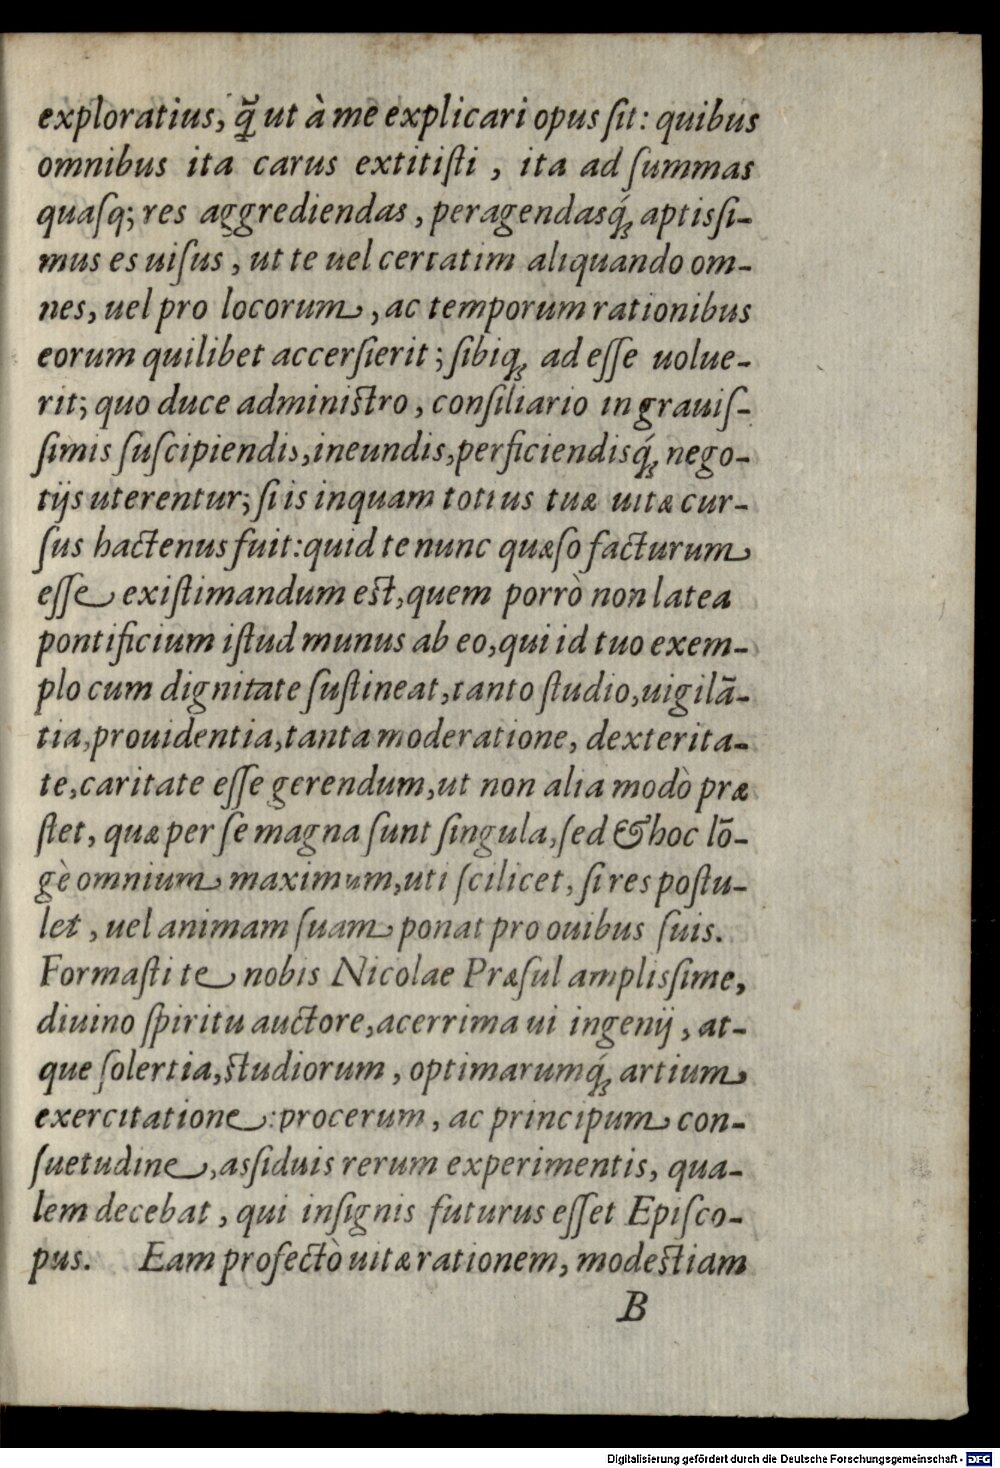 exploratius, q̃ ut à me explicari opus ſit: quibus
omnibus ita carus extitiſti, ita ad ſummas
quaſq; res aggrediendas, peragendasq́; aptisſi-
mus es uiſus, ut te uel certatim aliquando om-
nes, uel pro locorum, ac temporum rationibus
eorum quilibet accerſierit; ſibiq; ad eſſe uolue-
rit; quo duce adminiſtro, conſiliario in grauiſ-
ſimis ſuſcipiendis, ineundis, perficiendisq́; nego-
tijs uterentur; ſi is inquam totius tuæ uitæ cur-
ſus hactenus fuit: quid te nunc quæſo facturum
eſſe existimandum eſt, quem porrò non latea
pontificium iſtud munus ab eo, qui id tuo exem-
plo cum dignitate ſuſtineat, tanto ſtudio, uigilã-
tia, prouidentia, tanta moderatione, dexterita-
te, caritate eſſe gerendum, ut non alia modò præ
ſtet, quæ per ſe magna ſunt ſingula, ſed & hoc lõ-
gè omnium maximum, uti ſcilicet, ſi res poſtu-
let, uel animam ſuam ponat pro ouibus ſuis.
Formaſti te nobis Nicolae Præſul amplisſime,
diuino ſpiritu auctore, acerrima ui ingenij, at-
que ſolertia, ſtudiorum, optimarumq́; artium
exercitatione: procerum, ac principum con-
ſuetudine, asſiduis rerum experimentis, qua-
lem decebat, qui inſignis futurus eſſet Epiſco-
pus. Eam profectò uitæ rationem, modeſtiam
B
Digitalisierung gefördert durch die Deutsche Forschungsgemeinschaft - DFG